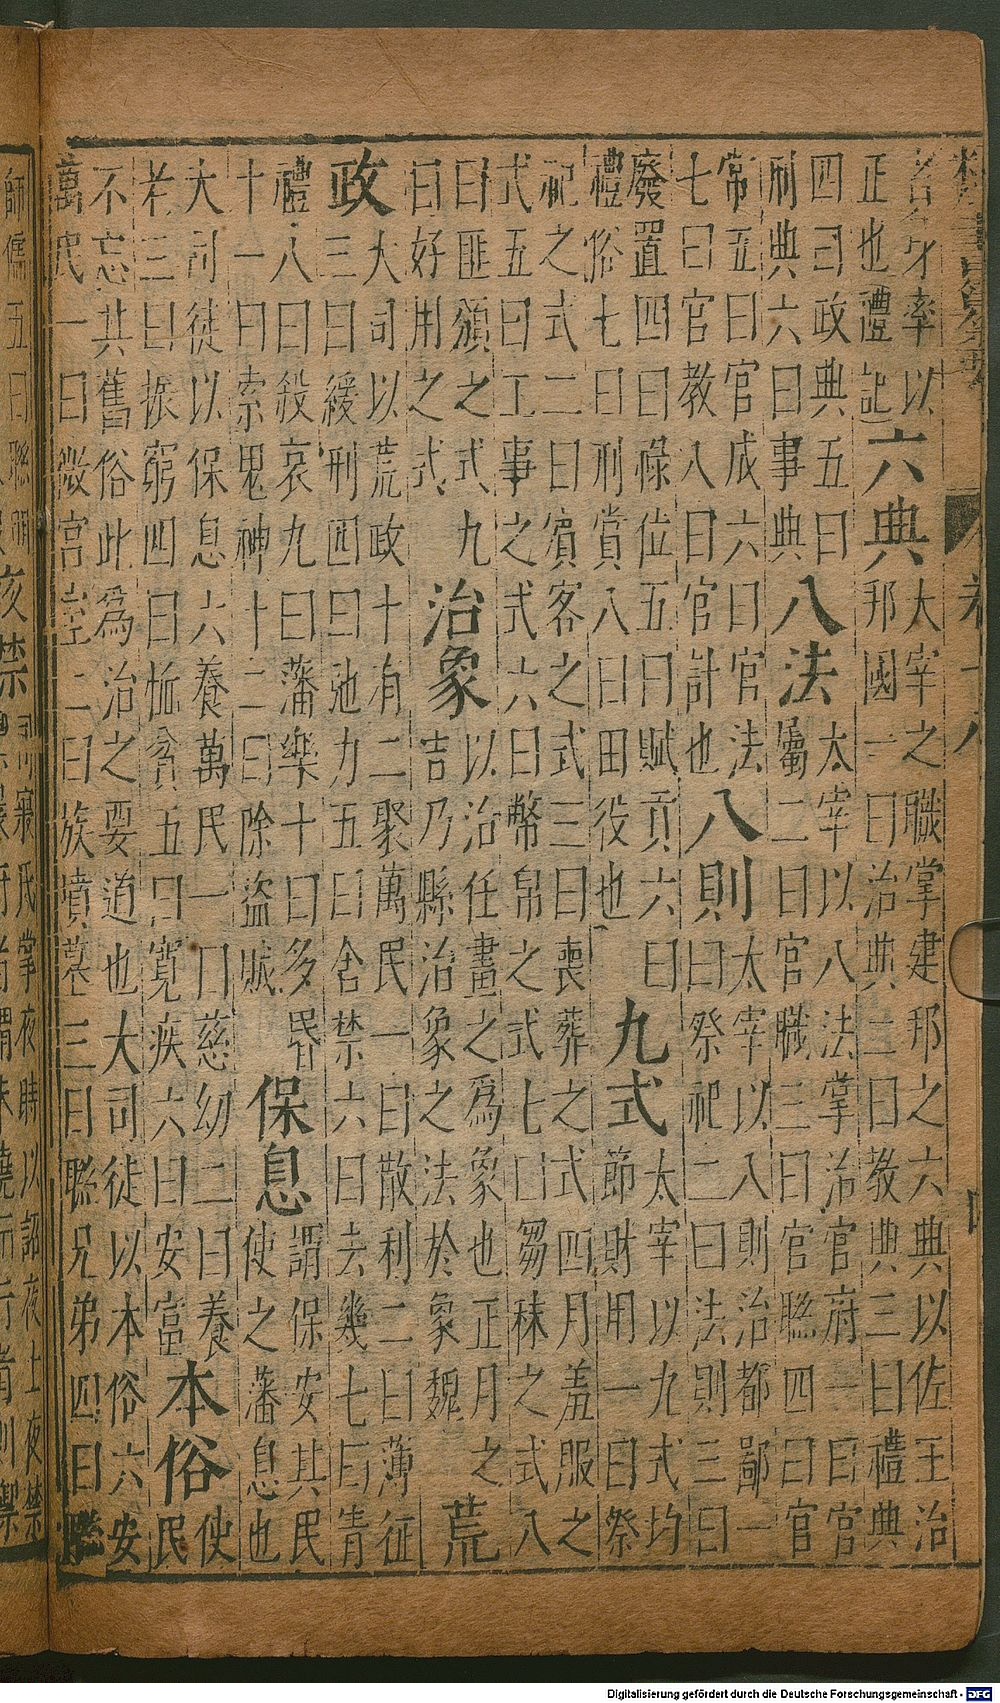 身率以
正也禮記
六典
大宰之職掌建邦之六典以佐王治
邦國一曰治典二曰教典三曰禮典
四曰政典五曰
刑典六曰事典
八法
太宰以八法掌治官府一曰官
屬二曰官職三曰官聯四曰官
常五曰官成六曰官法
七曰官教八曰官計也
八則
太宰以八則治都鄙一
曰祭祀二曰法則三曰
廢置四曰祿位五曰賦貢六曰
禮俗七曰刑賞八曰田役也
九式
太宰以九式均
節財用一曰祭
祀之式二曰賓客之式三曰喪葬之式四月羞服之
式五曰工事之式六曰幣帛之式七曰芻秣之式八
曰匪頒之式九
曰好用之式
治象
以治任畫之爲象也正月之
吉乃縣治象之法於象魏
荒
政
大司以荒政十有二聚萬民一曰散利二曰薄征
三曰緩刑四曰弛力五曰舍禁六曰去幾七曰眚
禮八曰殺哀九曰藩樂十曰多昬
十一曰索鬼神十二曰除盜賊
保息
謂保安其民
使之藩息也
大司徒以保息六養萬民一曰慈幼二曰養
老三曰振窮四曰恤貧五曰寬疾六曰安富
本俗
使
民
不忘其舊俗此爲治之要道也大司徒以本俗六安
萬民一曰媺宮室二曰族墳墓三曰聯兄弟四曰聯
師儒五曰聯朋
夜禁
司寤氏掌夜時以詔夜士夜禁
Digitalisierung gefördert durch die Deutsche Forschungsgemeinschaft - DFG